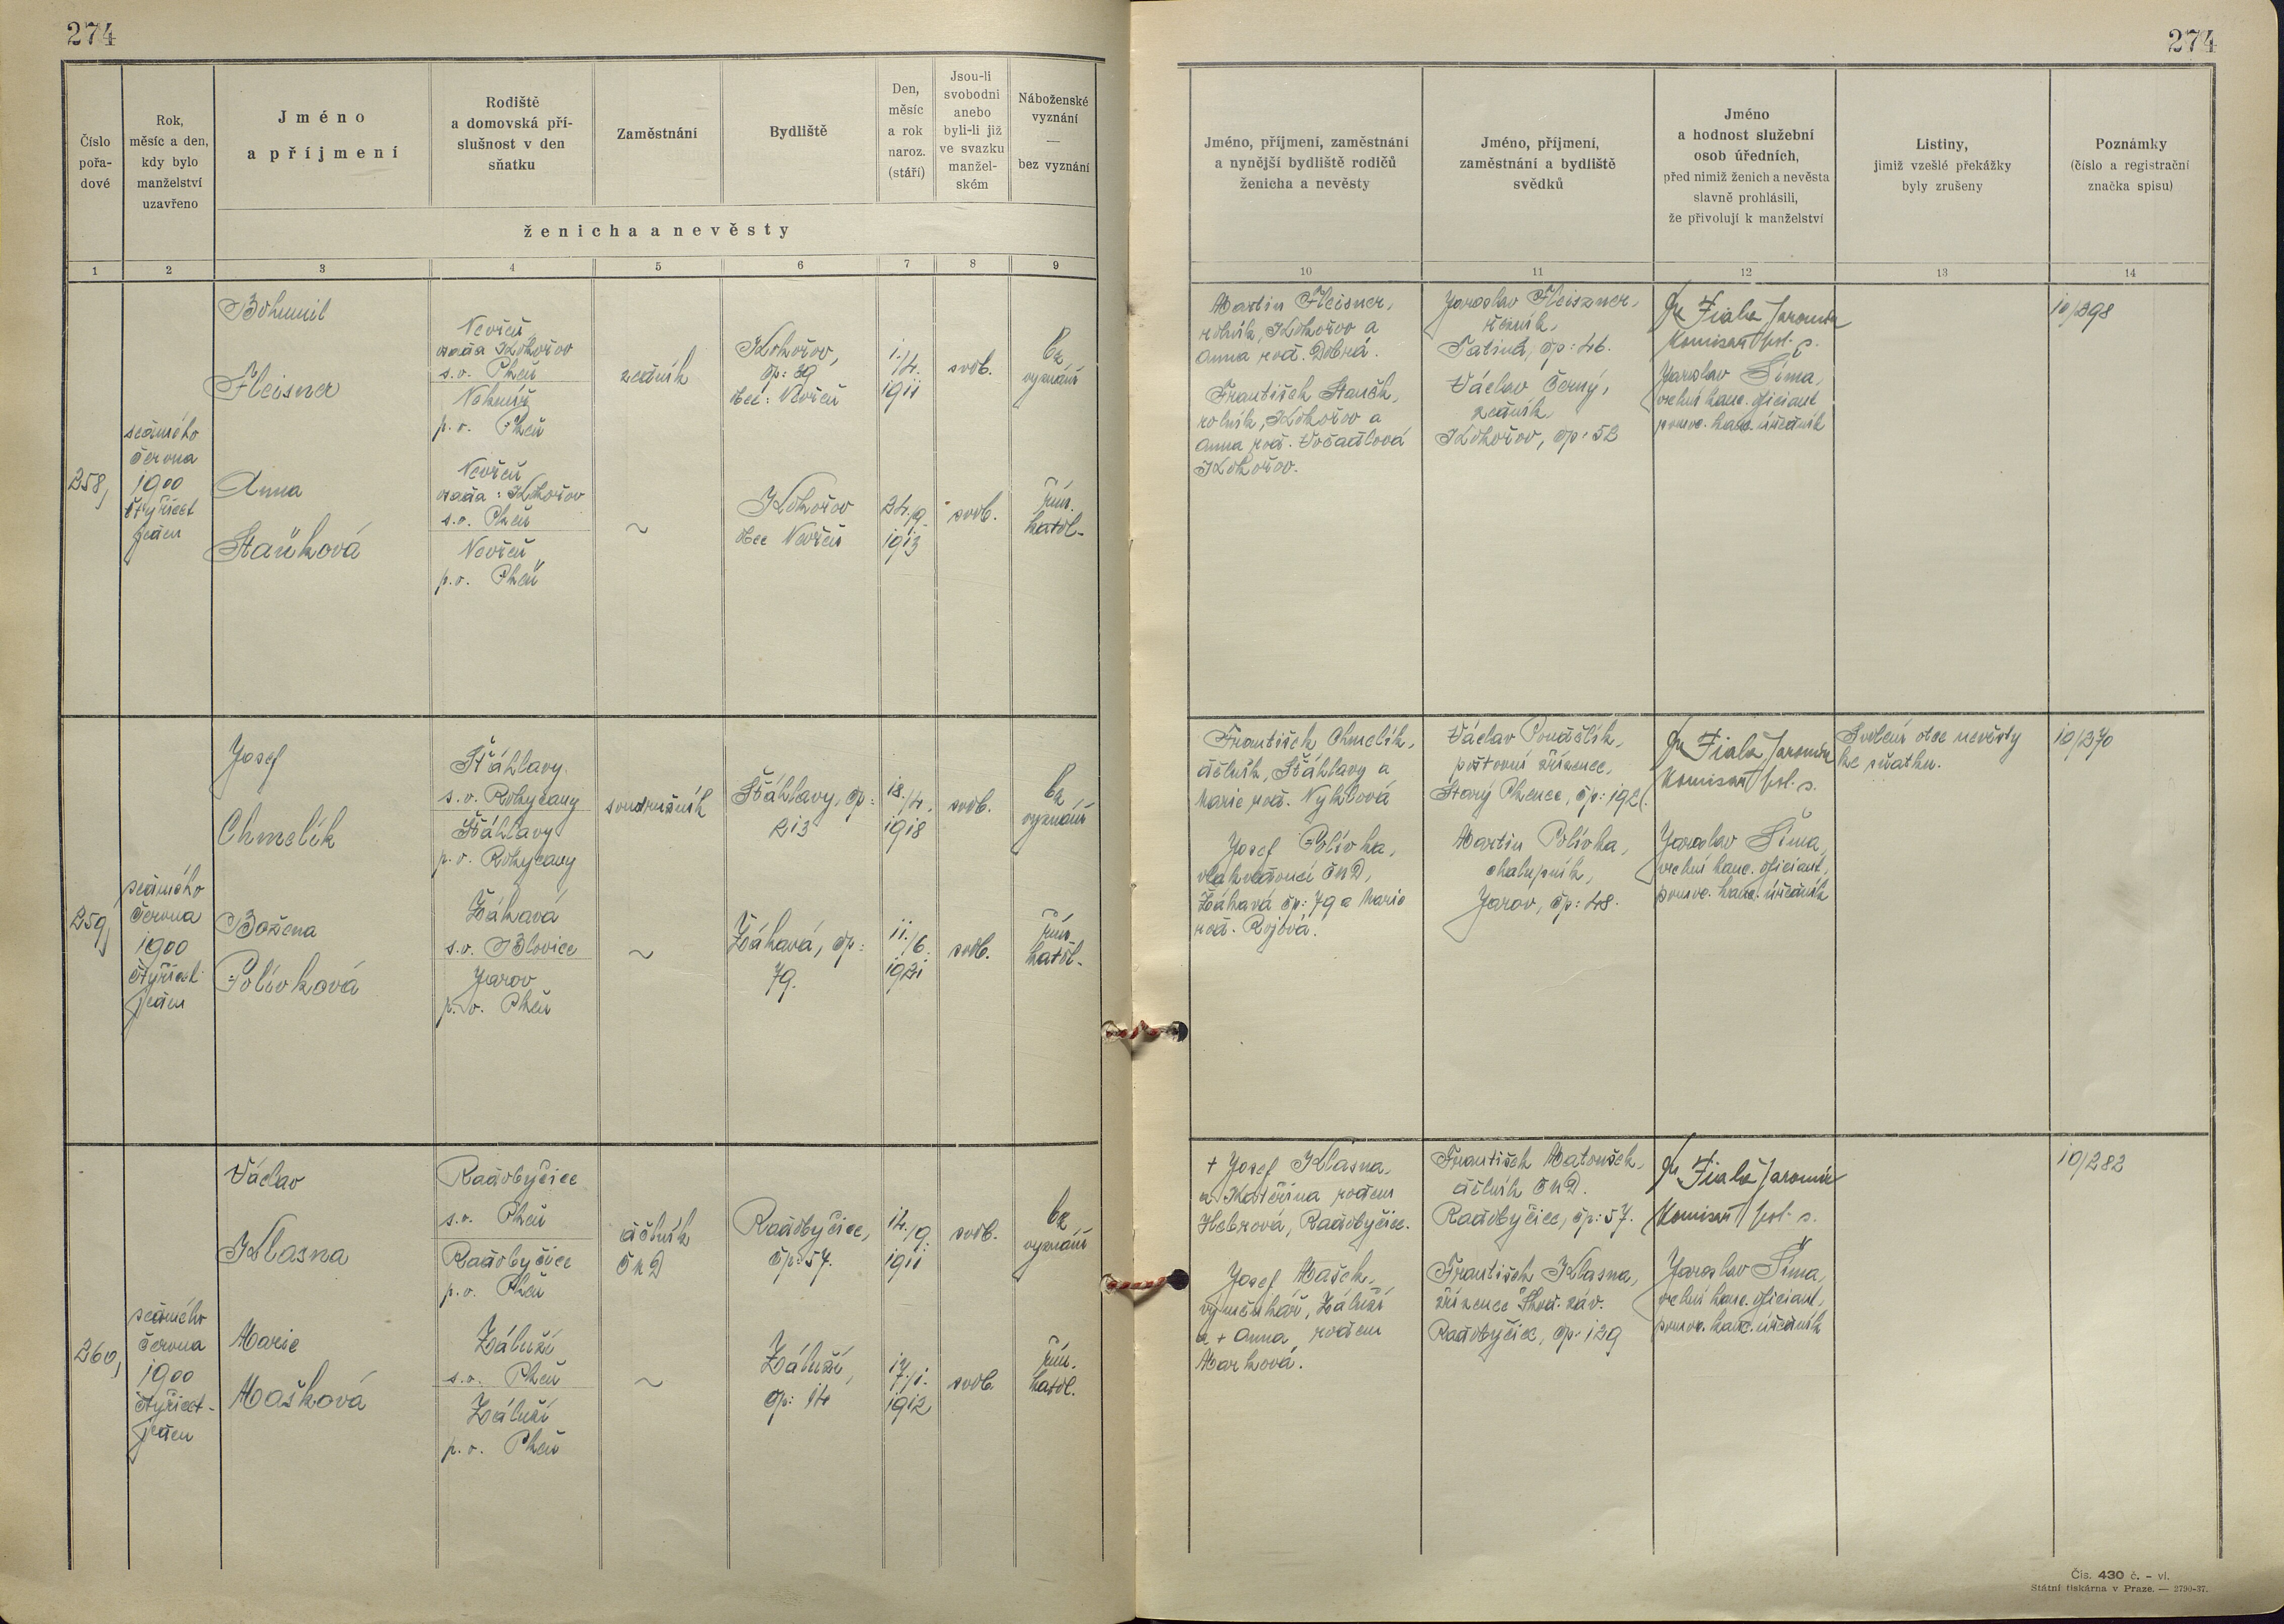 274
274
Číslo
pořa-
dové
Rok,
měsíc a den,
kdy bylo
manželství
uzavřeno
Jméno
a příjmení
Rodiště
a domovská pří-
slušnost v den
sňatku
Zaměstnání
Bydliště
Den,
měsíc
a rok
naroz.
(stáří)
Jsou-li
svobodni
anebo
byli-li již
ve svazku
manžel-
ském
Náboženské
vyznání
—
bez vyznání
ženicha a nevěsty
1 2 3 4 5 6 7 8 9
Jméno, příjmení, zaměstnání
a nynější bydliště rodičů
ženicha a nevěsty
Jméno, příjmení,
zaměstnání a bydliště
svědků
Jméno
a hodnost služební
osob úředních,
před nimiž ženich a nevěsta
slavně prohlásili,
že přivolují k manželství
Listiny,
jimiž vzešlé překážky
byly zrušeny
Poznámky
(číslo a registrační
značka spisu)
10 11 12 13 14
258,
sedmého
června
1900
čtyřicet
jeden
Bohumil
Fleisner
Nevřeň,
osada Kokořov
s.o. Plzeň
p.o. Plzeň
zedník
Kokořov,
čp: 39
obec: Nevřeň
1./4.
1911
svob.
bez
vyznání
Anna
Staňková
Nevřeň
osada: Kokořov
s.o. Plzeň
Nevřeň,
p.o. Plzeň
~
Kokořov
obec Nevřeň
24./9.
1913
svob.
řím.
katol.
Martin Fleisner,
rolník, Kokořov a
Anna roz. Dobrá.
František Staněk,
rolník, Kokořov a
Anna roz. Vočadlová
Kokořov.
Jaroslav Fleiszner,
řezník,
Tatiná, čp: 46.
Václav Černý,
zedník,
Kokořov, čp: 52
Dr Fiala Jaromír
Komisař pol. s.
Jaroslav Šíma,
vrchní kanc. oficiant
pomoc. kanc. úředník
10/398
259,
sedmého
června
1900
čtyřicet
jeden
Josef
Chmelík
Šťáhlavy.
s.o. Rokycany
Šťáhlavy
p.o. Rokycany
soustružník
Šťáhlavy, čp:
213
18./4.
1918
svob.
bez
vyznání
Božena
Polívková
Žákavá
s.o. Blovice
Jarov
p.o. Plzeň
~
Žákavá, čp:
79.
11./6.
1921
svob.
řím.
katol.
František Chmelík,
dělník, Šťáhlavy a
Marie roz. Nyklová
Josef Polívka,
vlakvedoucí ČSD,
Žákavá čp: 79 a Marie
roz. Rojová.
poštovní zřízenec,
Starý Plzenec, čp: 192.
Martin Polívka,
chalupník,
Jarov, čp: 48.
Dr Fiala Jaromír
Komisař pol. s.
Jaroslav Šíma,
vrchní kanc. oficiant,
pomoc. kanc. úředník
Svolení otce nevěsty
ke sňatku.
10/370
260,
sedmého
června
1900
čtyřicet-
jeden
Václav
Klasna
Radobyčice
s.o. Plzeň
Radobyčice
p.o. Plzeň
dělník
ČSD
Radobyčice,
čp: 57.
14./9.
1911
svob.
bez
vyznání
Marie
Mašková
Záluží
s.o. Plzeň
Záluží
p.o. Plzeň
~
Záluží,
čp: 14
1912
svob.
řím.
katol.
+ Josef Klasna,
a Kateřina rodem
Hebrová, Radobyčice.
Josef Mašek,
výměnkář, Záluží
a + Anna, rodem
Marková.
František Matoušek,
dělník ČSD.
Radobyčice, čp: 57.
František Klasna,
zřízenec Škod. záv.
Radobyčice, čp: 129
Dr Fiala Jaromír
Komisař pol. s.
Jaroslav Šíma,
vrchní kanc. oficiant,
pomoc. kanc. úředník
10/282
Čís. 430 č. – vl.
Státní tiskárna v Praze. — 2790-37.